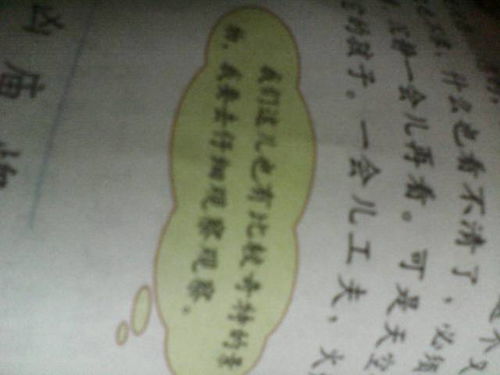 什么也看不清了，必须
静一会儿再看。可是天空
的孩子。一会儿工夫，火
我们这儿也有比较奇特的景
物，我要去仔细观察观察。
凶 庙